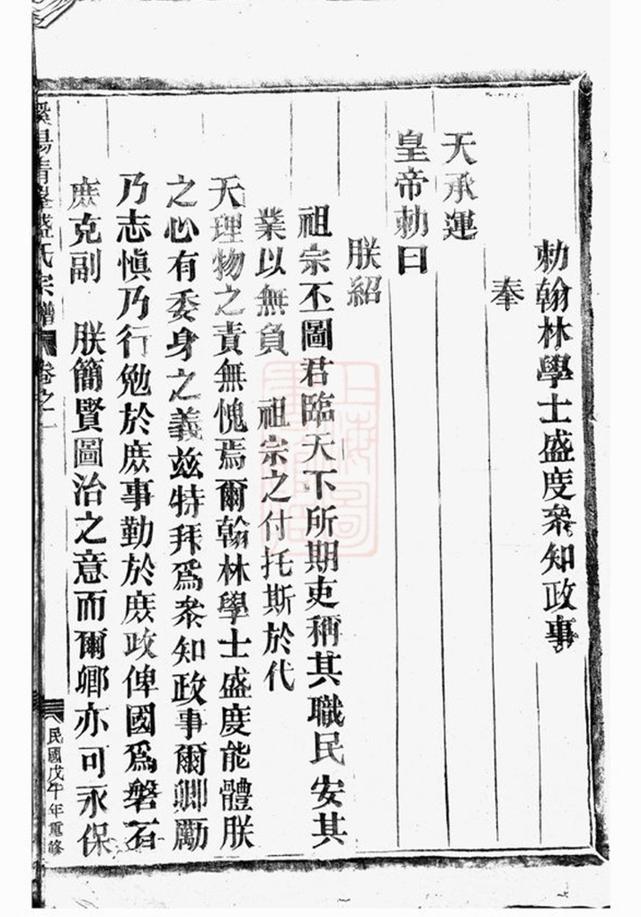 勑翰林學士盛度叅知政事
奉
天承運
皇帝勑曰
朕紹
祖宗丕圖君臨天下所期吏稱其職民安其
業以無負　祖宗之付托斯於代
天理物之責無愧焉爾翰林學士盛度能體朕
之心有委身之義兹特拜爲叅知政事爾卿勵
乃志愼乃行勉於庶事勤於庶政俾國爲磐石
庶克副　朕簡賢圖治之意而爾卿亦可永保
陽清峯盛氏宗譜　卷之一　民國戊午年重修
上海圖